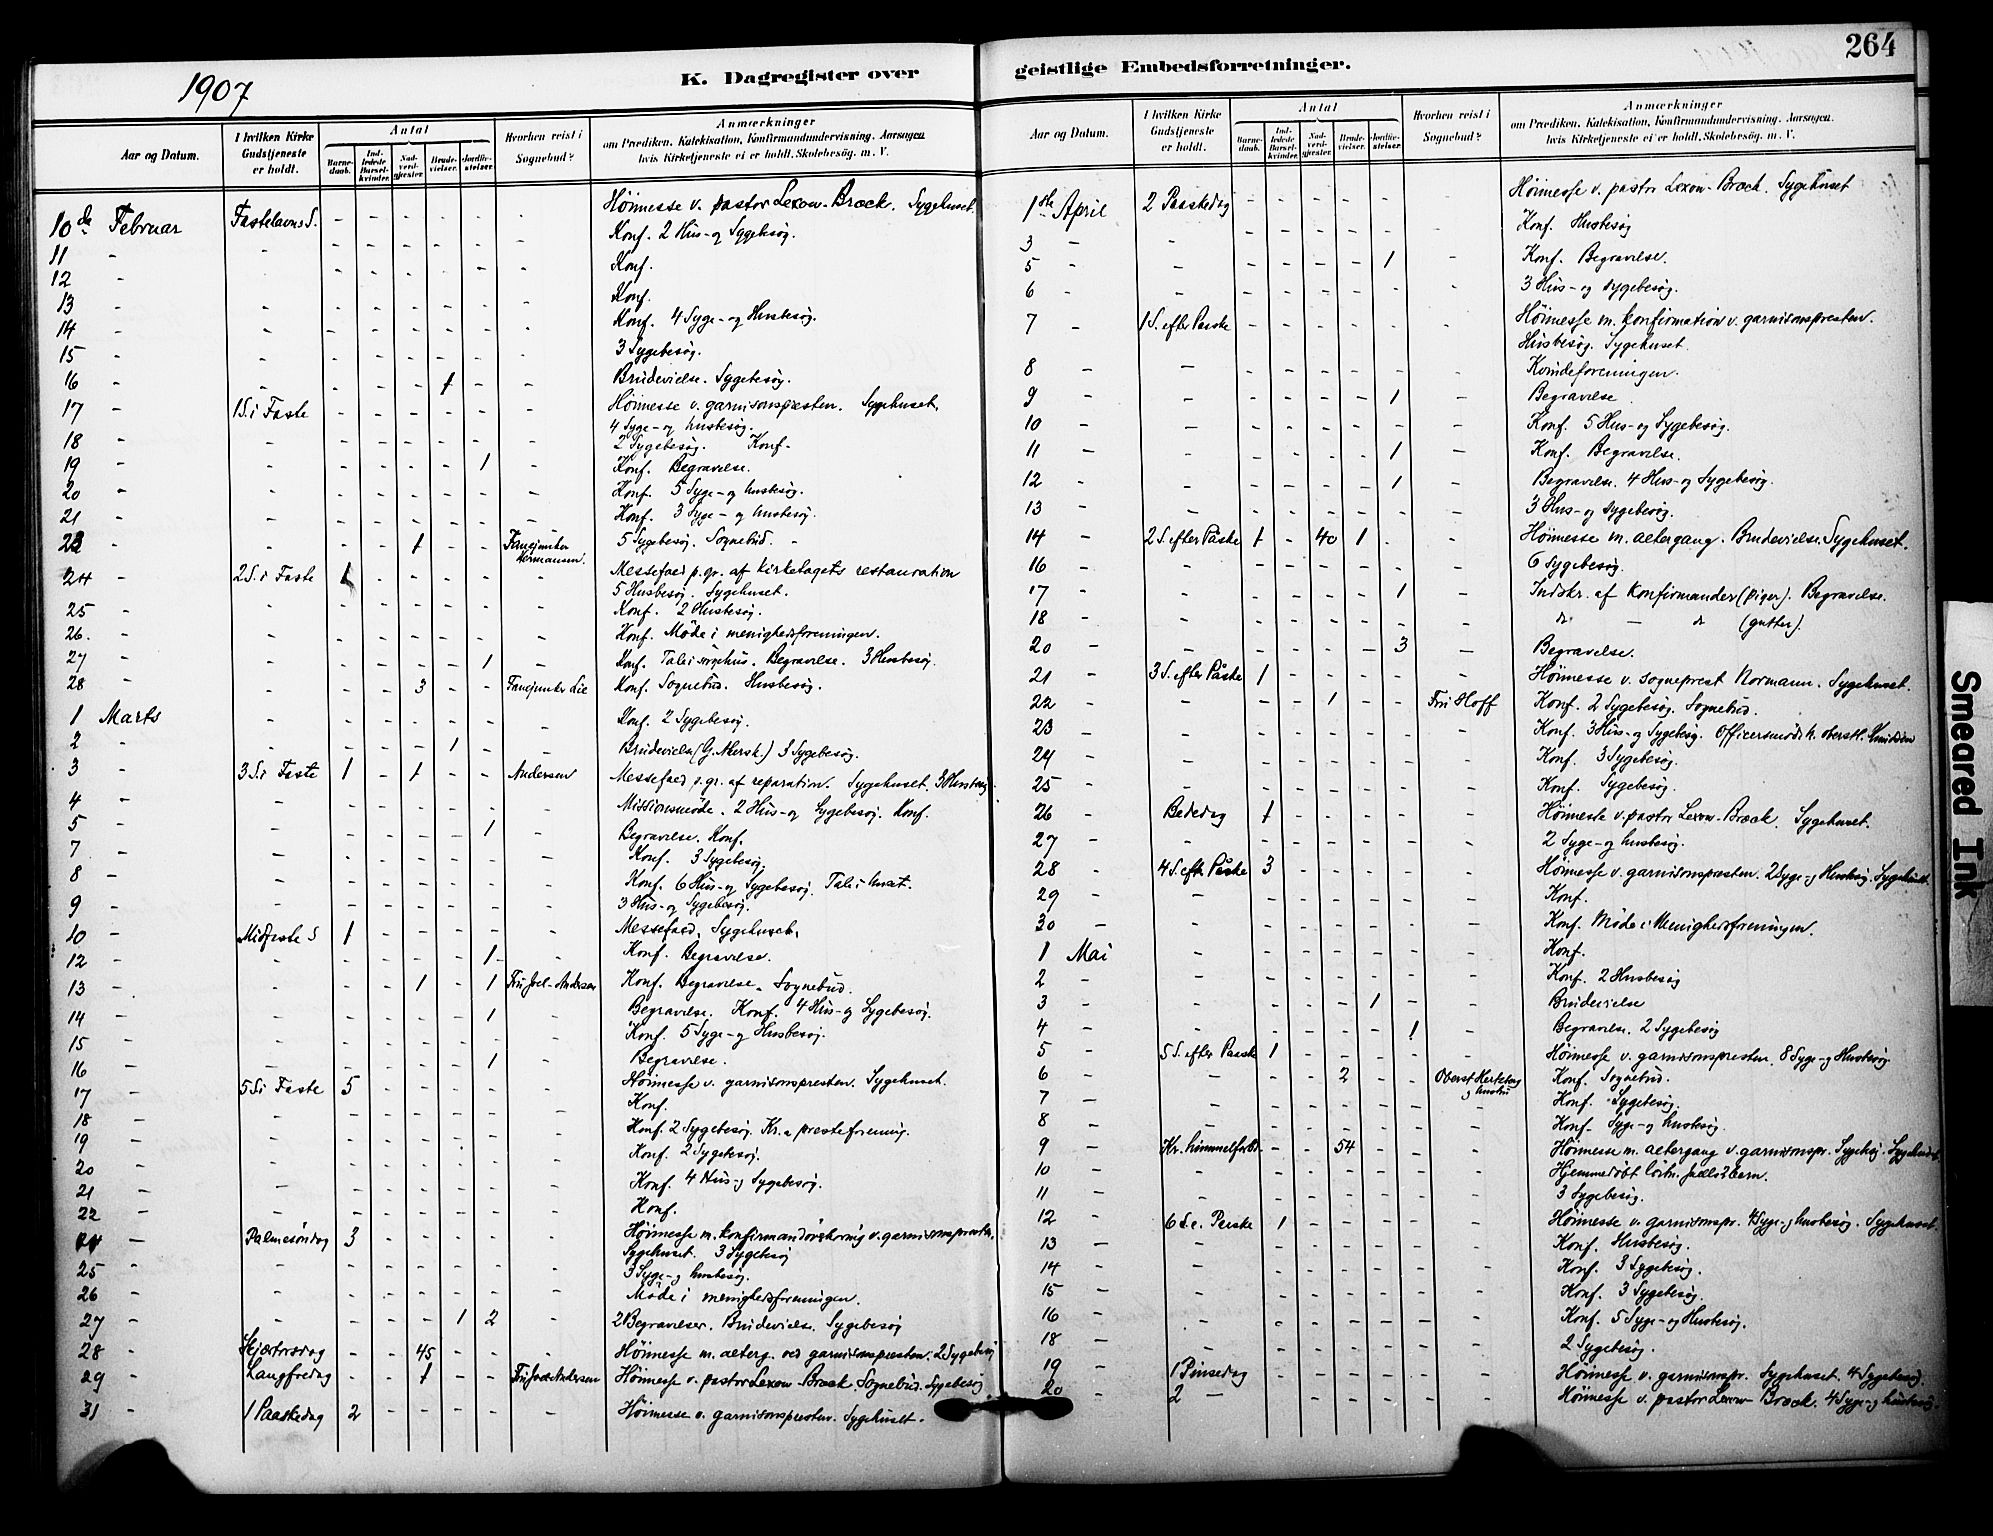 264
1907
K. Dagregister over
geistlige Embedsforretninger.
Aar og Datum.
I hvilken Kirke Gudstjeneste er holdt.
Antal
Barnedaab.
Indledede Barselkvinder.
Nadverdgjester.
Brudevielser.
Jordfæstelser.
Hvorhen reist i Sognebud?
Anmærkninger
om Prædiken, Katekisation, Konfirmandundervisning. Aarsagen
hvis Kirketjeneste ei er holdt. Skolebesøg. m. V.
10de Februar Fastelavns S. - - - - - - Höimesse v. pastor Lexow-Bræck. Sygehuset.
11 - - - - - - - - Konf. 2 Hus- og Sygebesøg.
12 - - - - - - - Konf.
13 - - - - - - - - Konf.
14 - - - - - - - - Konf. 4 Syge- og Husbesøg.
15 - - - - - - - - 3 Sygebesøg.
16 - - - - - 1 - - Brudevielse. Sygebesøg.
17 - 1 S. i Faste - - - - - - Höimesse v. garnisonspresten. Sygehuset.
4 Syge- og husbesøg.
18 - - - - - - - - 2 Sygebesøg. Konf.
19 - - - - - - 1 - Konf. Begravelse.
20 - - - - - - - - Konf. 5 Syge- og husbesøg.
21 - - - - - - - - Konf. 3 Syge- og husbesøg.
23 - - - - 1 - - Fanejunker Hermansen. 5 Sygebesøg. Sognebud.
24 - 2 S. i Faste 1 - - - - - Messefald p. gr. af kirketagets restauration
5 Husbesøg. Sygehuset.
25 - - - - - - - - Konf. 2 Husbesøg.
26. - - - - - - - - Konf. Møde i menighedsforeningen.
27 - - - - - - 1 - Konf. Tale i sørgehus. Begravelse. 3 Husbesøg.
28 - - - - 3 - - Fanejunker Lie Konf. Sognebud. Husbesøg.
1 Marts - - - - - - - Konf. 2 Sygebesøg.
2 - - - - - 1 - - Brudevielse (G. Akersk.) 3 Sygebesøg.
3 - 3 S. i Faste 1 - 1 - - Andersen Messefald p. gr. af reparation. Sygehuset. 3 Husbesøg.
4 - - - - - - - - Missionsmøde. 2 Hus- og Sygebesøg. Konf.
5 - - - - - - 1 - Begravelse. Konf.
7 - - - - - - - - Konf. 3 Sygebesøg.
8 - - - - - - - - Konf. 6 Hus- og Sygebesøg. Tale i huset.
9 - - - - - - - - 3 Hus- og Sygebesøg.
10 - Midfaste S 1 - - - - - Messefald. Sygehuset.
12 - - - - - - 1 - Konf. Begravelse.
13 - - - - 1 - 1 Fru Joel-Andersen Konf. Begravelse. Sognebud.
14 - - - - - - 1 - Begravelse. Konf. 4 Hus- og Sygebesøg.
15 - - - - - - - - Konf. 5 Syge- og Husbesøg.
16 - - - - - - 1 - Begravelse.
17 - 5 S. i Faste 5 - - - - Höimesse v. garnisonspresten. Sygehuset.
18 - - - - - - - - Konf.
19 - - - - - - - - Konf. 2 Sygebesøg. Kr.a presteforening.
20 - - - - - - - - Konf. 2 Sygebesøg.
21 - - - - - - - - Konf. 4 Hus- og Sygebesøg.
22 - - - - - - - - Konf.
24 - Palmesöndag 3 - - - - - Höimesse m. konfirmandoverhöring v. garnisonspresten.
Sygehuset. 3 Sygebesøg
25 - - - - - - - - 3 Syge- og husbesøg.
26 - - - - - - - - Møde i menighedsforeningen.
27 - - - - - 1 2 - 2 Begravelser. Brudevielse. Sygebesøg
28 - Skjærtorsdag - - 45 - - - Höimesse m. alterg. ved garnisonspresten. 2 Sygebesøg
29 - Langfredag - - 1 - - Fru Joel-Andersen Höimesse v. pastor Lexow-Bræck. Sognebud. Sygebesøg
31 - 1 Paaskedag 2 - - - - - Höimesse v. garnisonspresten. Sygehuset.
Aar og Datum.
I hvilken Kirke Gudstjeneste er holdt.
Antal
Barnedaab.
Indledede Barselkvinder.
Nadverdgjester.
Brudevielser.
Jordfæstelser.
Hvorhen reist i Sognebud?
Anmærkninger
om Prædiken, Katekisation, Konfirmandundervisning. Aarsagen
hvis Kirketjeneste ei er holdt. Skolebesøg. m. V.
1ste April 2 Paaskedag - - - - - - Höimesse v. pastor Lexow-Bræck. Sygehuset
3 - - - - - - - Konf. Husbesøg
5 - - - - - - 1 - Konf. Begravelse.
6 - - - - - - - - 3 Hus- og Sygebesøg.
7 - 1 S. efter Paaske - - - - - - Höimesse m. konfirmation v. garnisonspresten.
Husbesøg. Sygehuset.
8 - - - - - - - - Kvindeforeningen.
9 - - - - - - 1 - Begravelse
10 - - - - - - - - Konf. 5 Hus- og Sygebesøg.
11 - - - - - - 1 - Konf. Begravelse.
12 - - - - - - 1 - Begravelse. 4 Hus- og Sygebesøg.
13 - - - - - - - - 3 Hus- og Sygebesøg.
14 - 2 S. efter Påske 1 - 40 1 - - Höimesse m. altergang. Brudevielse. Sygehuset.
16 - - - - - - - - 6 Sygebesøg.
17 - - - - - - 1 - Indskr. af Konfirmander (piger). Begravelse.
18 - - - - - - - - do - do (gutter).
20 - - - - - - 3 - Begravelse.
21 - 3 S. efter Påske 1 - - - - - Höimesse v. sogneprest Normann. Sygehuset.
22 - - - - 1 - - Fru Hoff Konf. 2 Sygebesøg. Sognebud.
23 - - - - - - - - Konf. 3 Hus- og Sygebesøg. Officersmøde h. oberstl.
24 - - - - - - - - Konf. 3 Sygebesøg.
25 - - - - - - - - Konf. Sygebesøg.
26 - Bededag 1 - - - - - Höimesse v. pastor Lexow-Bræck. Sygehuset.
27 - - - - - - - - 2 Syge- og husbesøg.
28 - 4 S. eft. Påske 3 - - - - - Höimesse v. garnisonspresten. 2 Syge- og Husbesøg. Sygehuset.
29 - - - - - - - - Konf.
30 - - - - - - - - Konf. Møde i Menighedsforeningen.
1 Mai - - - - - - - Konf.
2 - - - - - - - - Konf. 2 Husbesøg
3 - - - - - 1 - - Brudevielse
4 - - - - - - 1 - Begravelse. 2 Sygebesøg
5 - 5 S. efter Paaske 1 - - - - - Höimesse v. garnisonspresten. 8 Syge- og Husbesøg
6 - - - - 2 - - Oberst Hertzberg og hustru Konf. Sognebud.
7 - - - - - - - - Konf. Sygebesøg.
8 - - - - - - - - Konf. Syge- og husbesøg.
9 - Kr. himmelfartsd. - - 54 - - - Höimesse m. altergang v. garnisonspr. Sygebesøg. Sygehuset.
10 - - - - - - - - Hjemmedöbt
11 - - - - - - - - 3 Sygebesøg.
12 - 6 S. e. Paaske 1 - - - - - Höimesse v. garnisonspr. 4 Syge- og husbesøg. Sygehuset.
13 - - - - - - - - Konf. Husbesøg.
14 - - - - - - - - Konf. 3 Sygebesøg.
15 - - - - - - - - Konf. 3 Sygebesøg.
16 - - - - - - - - Konf. 5 Syge- og Husbesøg.
18 - - - - - - - - 2 Sygebesøg.
19 - 1 Pinsedag - - - - - - Höimesse v. garnisonspr. Sygehuset. 4 Sygebesøg.
20 - 2 - - - - - - - Höimesse v. pastor Lexow-Bræck. 4 Syge- og husbesøg.
Smeared Ink